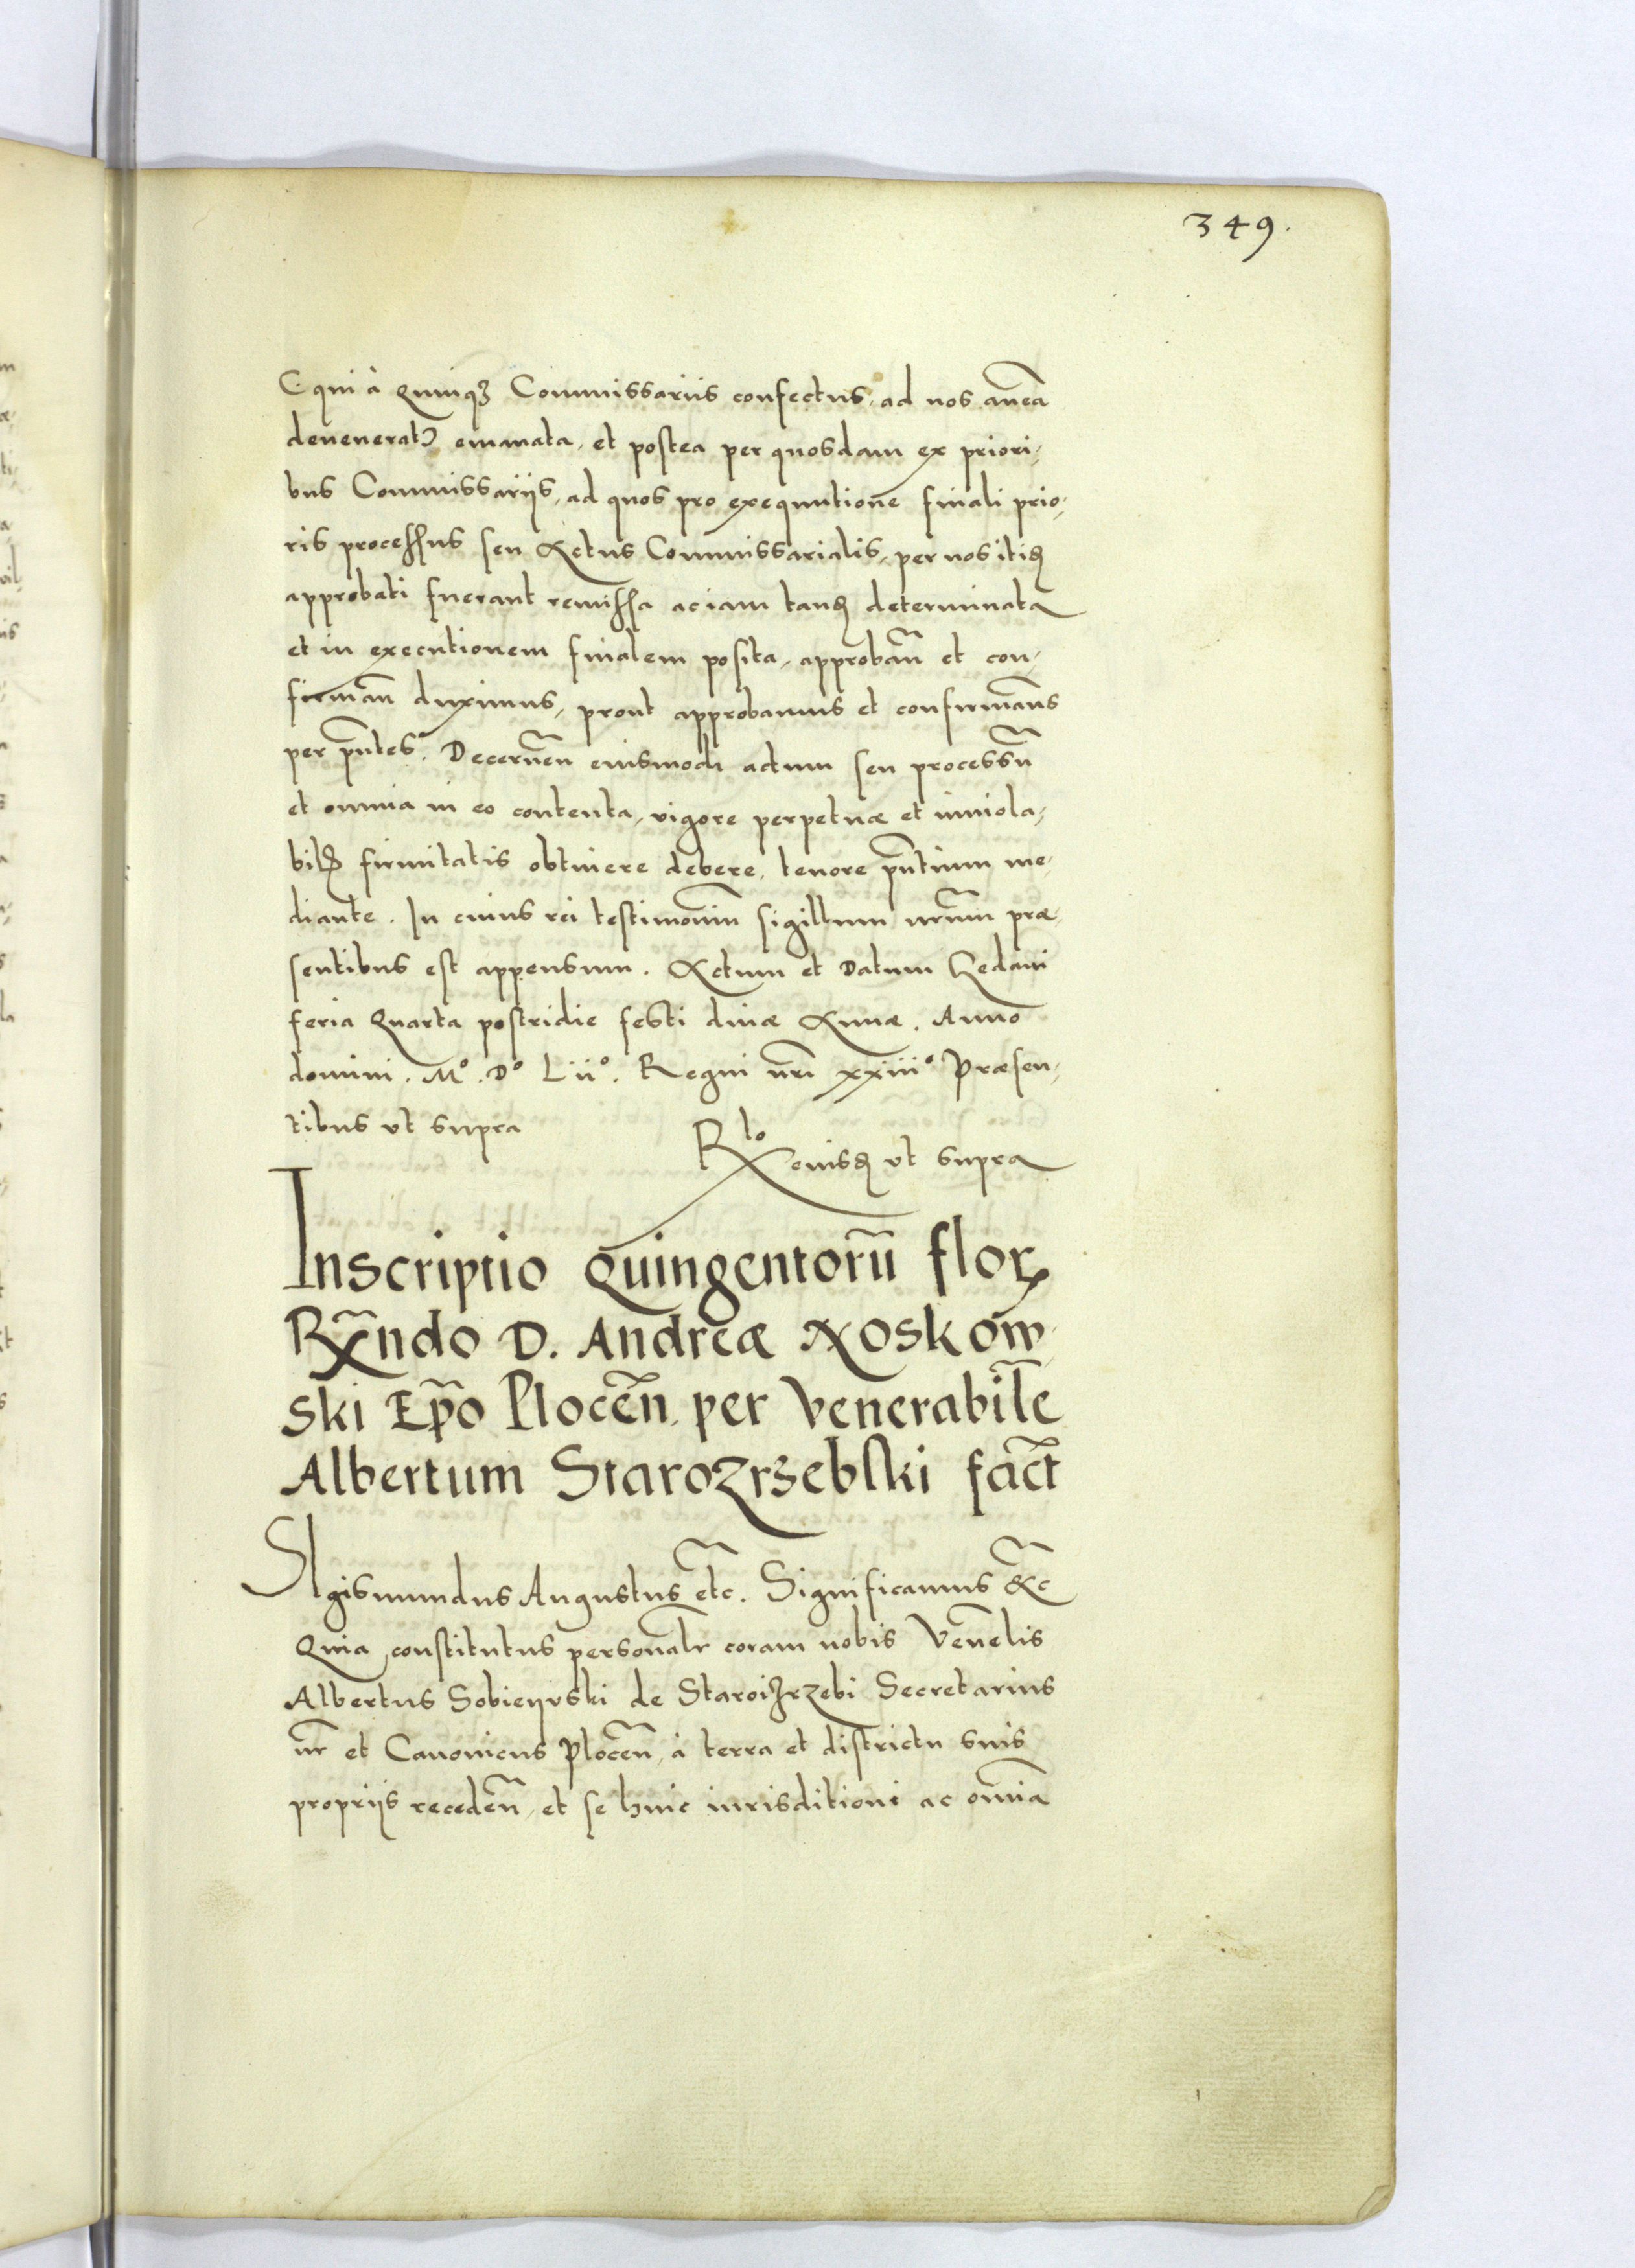 349.
E qui à quinq[ue] Commissariis confectus, ad nos antea
deveneratq[ue] emanata, et postea per quosdam ex priori-
bus Commissariis, ad quos pro exequutione finali prio-
ris processus seu Actus Commissarialis, per nos itid[em]
approbati fuerant remissa ac iam tand[em] determinata
et in executionem finalem posita, approban̄ et con-
firman̄ duximus, prout approbamus et confirmam̄s
per pn̄tes. Decernen̄ eiusmodi actum seu processū
et omnia in eo contenta, vigore perpetuæ et inviola-
bilis firmitatis obtinere debere, tenore pn̄tium me-
diante. In cuius rei testimoniū sigillum nr̄um præ-
sentibus est appensum. Actum et Datum Gedani
feria Quarta postridie festi divæ Annæ. Anno
domini. Mº. Dº Liiº. Regni nr̄i xxiiiº Præsen-
tibus ut supra
Rlo eiusd[em] ut supra
Inscriptio Quingentorū flor.
Rn̄do D. Andreæ Noskow-
ski Ep̄o Plocen̄. per Venerabil̄e
Albertum Starozrzebski fact̄
SIgismundus Augustus etc̄. Significamus &c̄
Quia constitutus personalr̄ coram nobis Ven̄elis
Albertus Sobieyuski de Staroizrzebi Secretarius
nr̄ et Canonicus Plocen̄, à terra et districtu suis
propriis receden̄, et se huic iurisditioni ac omn̄ia